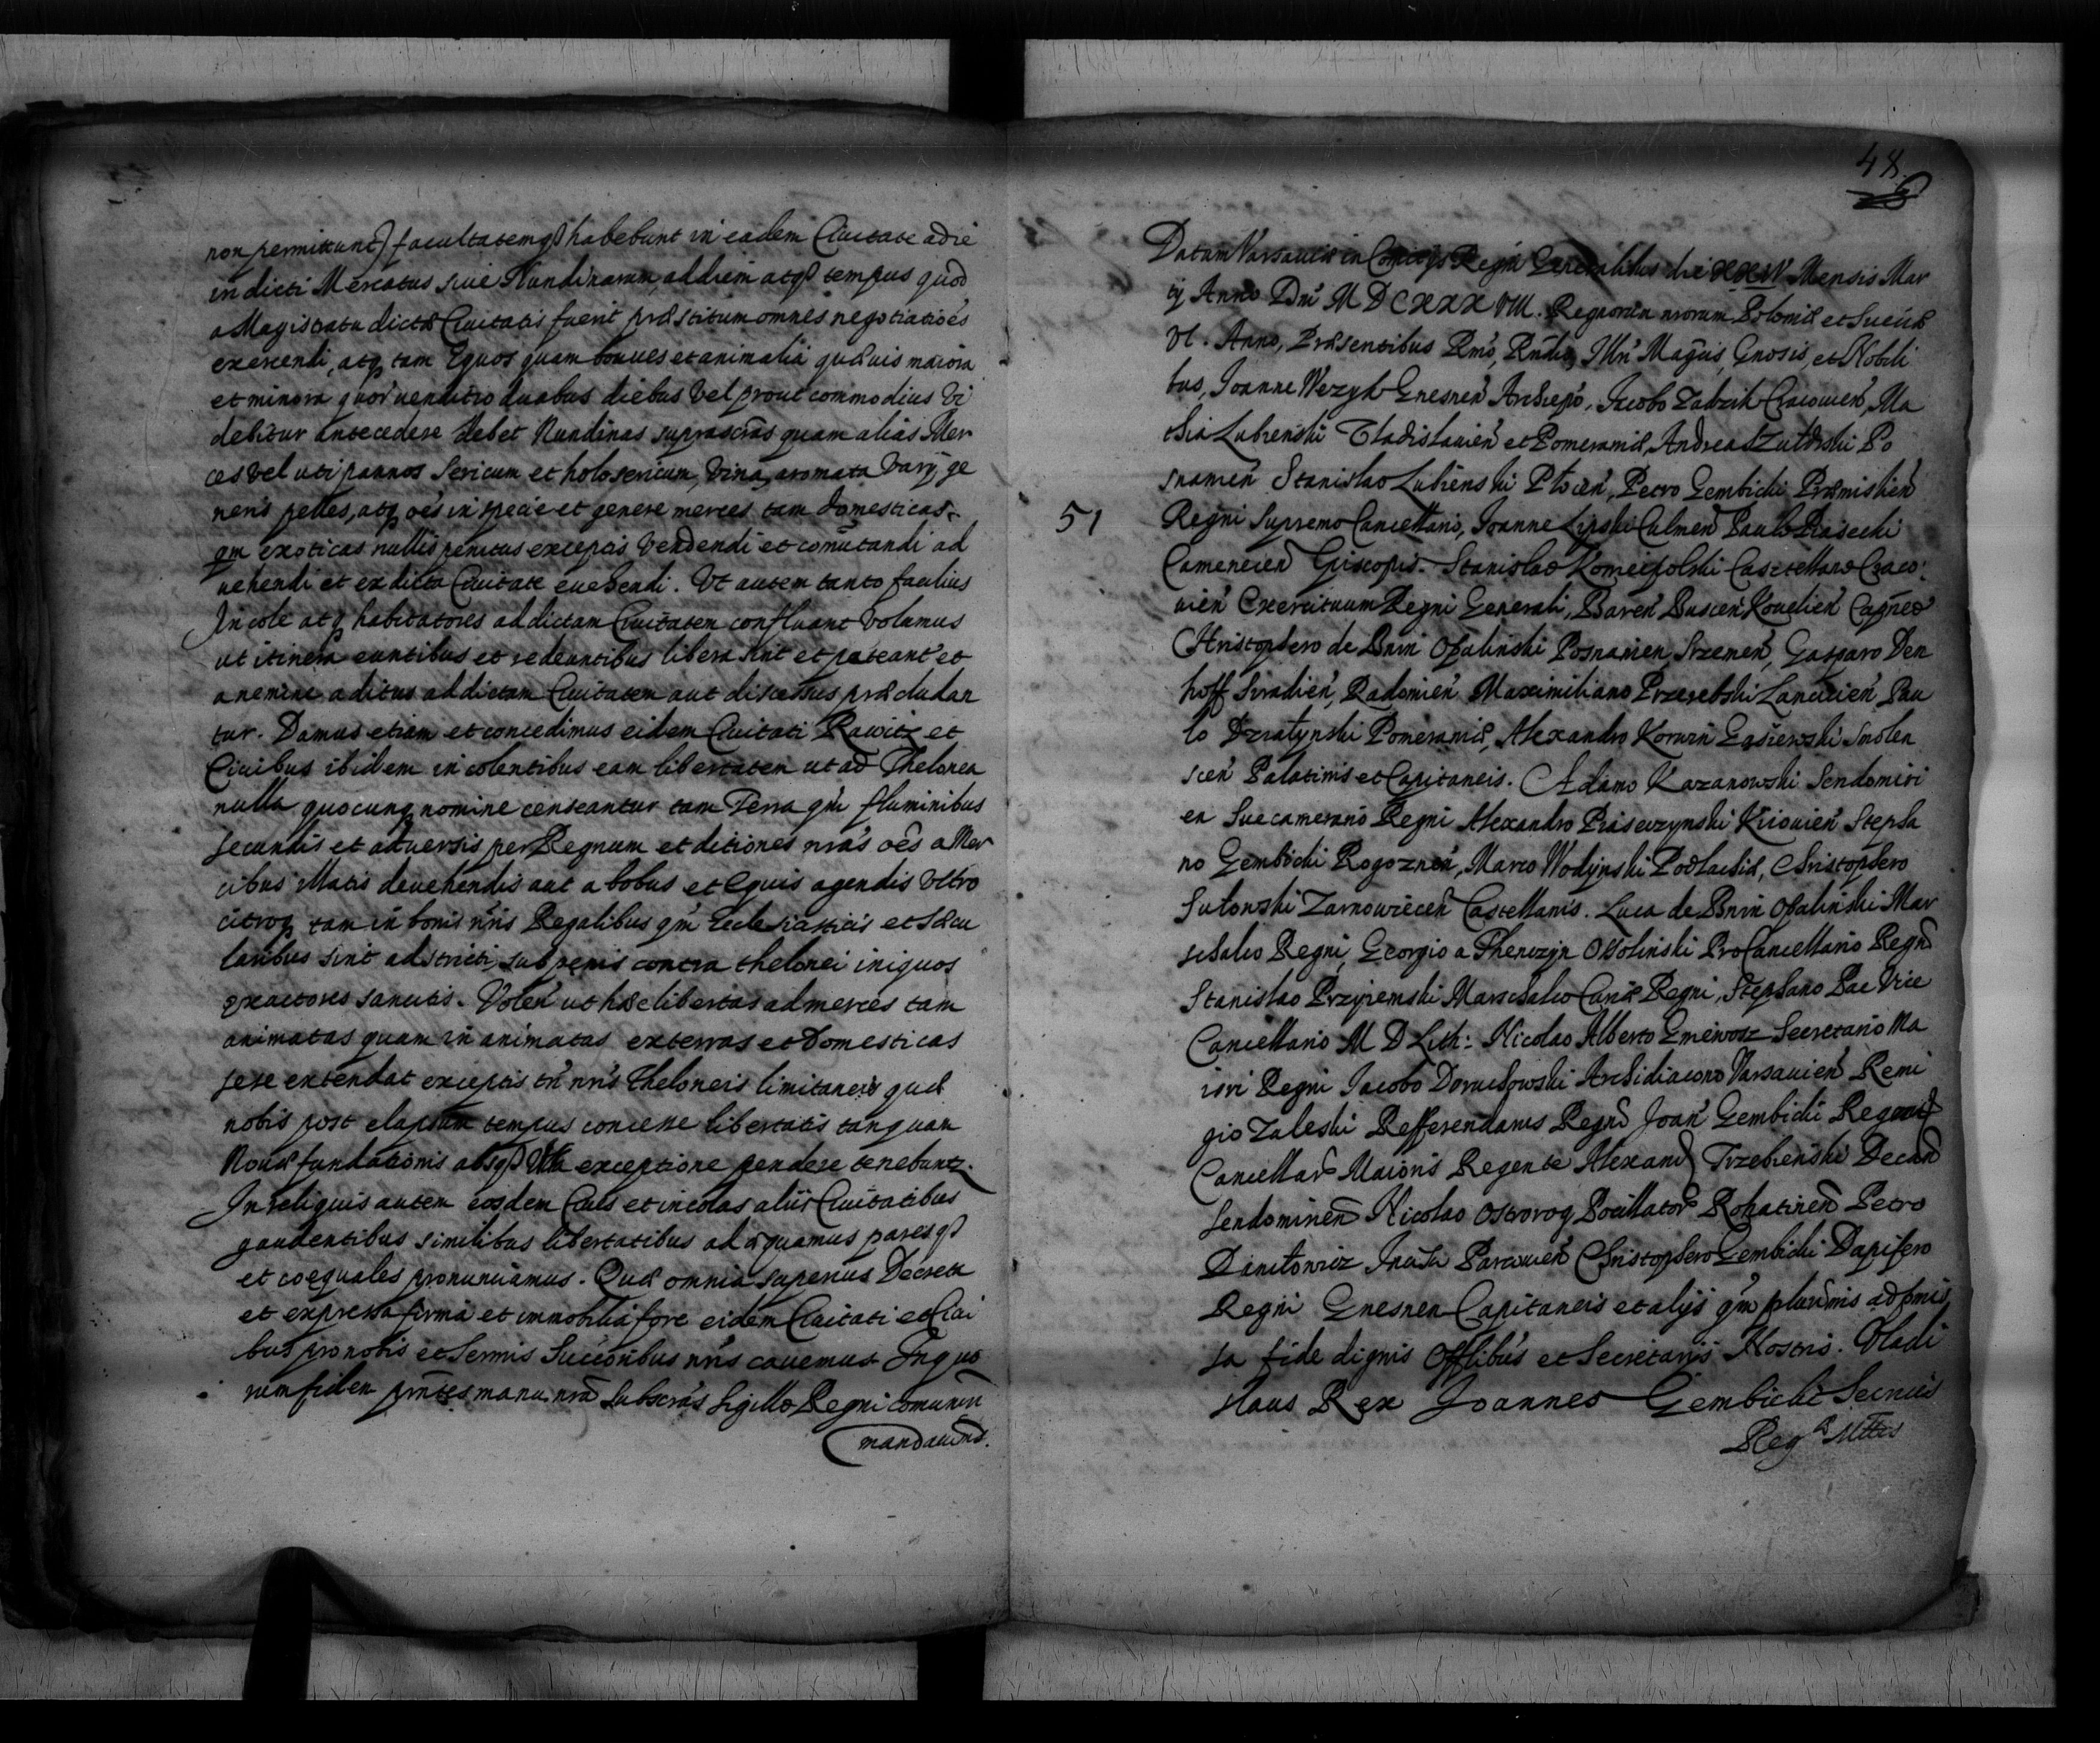 non permittunt) facultatemq habebunt in eadem Ciuitate a die
indicti Mercatus siue Nundinarum, ad diem atq tempus quod
a Magistratu dictæ Ciuitatis fuerit præstitum omnes negotiatiões
exercendi, atq tam Equos quam boues et animalia quæuis maiora
et minora quor' uenditio duobus diebus vel prout commodius vi
debitur antecedere debet Nundinas suprascrãs quam alias Mer
ces vel uti pannos Sericum et holosericum, vina, aromata varij ge
neris pelles, atq oẽs in specie et genere merces tam domesticas
qm exoticas nullis penitus exceptis vendendi et com̃utandi ad
uehendi et ex dicta Ciuitate euehendi. Vt autem tanto facilius
Incole atq habitatores ad dictam Ciuitatem confluant Volumus
ut itinera euntibus et redeuntibus libera sint et pateant et
a nemine aditus ad dictam Ciuitatem aut discessus præcludan
tur. Damus etiam et concedimus eidem Ciuitati Rawicz et
Ciuibus ibidem incolentibus eam libertatem ut ad Thelonea
nulla quocunq nomine censeantur tam Terra qm̃ fluminibus
secundis et aduersis per Regnum et ditiones nrãs oẽs a Mer
cibus illatis deuehendis aut a bobus et Equis agendis vltro
citroq tam in bonis nr̃is Regalibus qm̃ Ecclesiasticis et Sæcu
laribus sint adstricti, sub penis contra thelonei iniquos
exactores sancitis. Volen̄ ut hæc libertas ad merces tam
animatas quam inanimatas externas et Domesticas
sese extendat exceptis tñ nr̃is theloneis limitaneis quæ
nobis post elapsum tempus concessæ libertatis tanquam
Nouæ fundationis absq vlla exceptione pendere tenebunt.
In reliquis autem eosdem Ciues et incolas aliis Ciuitatibus
gaudentibus similibus libertatibus adæquamus paresq
et coequales pronunciamus. Quæ omnia superius Decreta
et expressa firma et immobilia fore eidem Ciuitati et Ciui
bus pro nobis et Sermis Successoribus nr̃is cauemus. In quo
rum fidem pr̃ntes manu nr̃a Subscrãs Sigillo Regni comuniri
mandauim̃s.
48
Datum Varsauiæ in Comitijs Regni Generalibus die XXIV Mensis Mar
tij Anno Dni M D C XXX VIII. Regnorum nrorum Poloniæ et Sueciæ
VI. Anno, Præsentibus Rm̃s, Rñdis, Illr̃ Mag̃cis, Gnosis, et Nobili
bus, Joanne Wezyk Gnesnen̄ Archiepõ, Jacobo Zadzik Cracouien̄, Ma
thia Lubienski Vladislauien̄ et Pomeraniæ, Andrea Szuldrski Po
snanien̄ Stanislao Lubienski Płocen̄, Petro Gembicki Præmislien̄
51
Regni Supremo Cancellario, Joanne Lipski Culmen̄ Paulo Piasecki
Camenecen̄ Episcopis. Stanislao Koniecpolski Castellano Craco
uien̄ Exercituum Regni Generali, Baren̄ Buscen̄ Kouelien̄ Capneo
Christophero de Bnin Opalinski Posnanien̄ Srzemen̄, Gasparo Den
hoff Siradien̄, Radomien̄ Maximiliano Przerebski Lancicien̄ Pau
lo Działynski Pomeraniæ, Alexandro Korwin Gąsiewski Smolen
scen̄ Palatinis et Capitaneis. Adamo Kazanowski Sendomiri
en Succamerario Regni Alexandro Piaseczynski Kiiouien̄ Stepha
no Gembicki Rogoznen̄, Marco Wodÿnski Podlachiæ, Christophero
Sułowski Zarnowiecen̄ Castellanis. Luca de Bnin Opalinski Mar
schalco Regni, Georgio a Thenczÿn Ossolinski ProCancellario Regni
Stanislao Przyiemski Marschalco Curiæ Regni, Stephano Pac Vice
Cancellario M D Lith: Nicolao Alberto Gniewosz Secretario Ma
iori Regni Jacobo Doruchowski Archidiacono Varsauien̄ Remi
gio Zaleski Refferendarus Regni Joan̄ Gembicki Regni
Cancellar' Maioris Regente Alexand Trzebienski Decan
Sendomirien̄ Nicolao Ostrorog Pocillator' Rohatinen̄ Petro
Daniłowicz Incisa Parcouien̄ Christophero Gembicki Dapifero
Regni Gnesnen Capitaneis et alijs qm̃ plurimis ad pmis
sa fide dignis Offlibus et Secretarijs Nostris. Vladi
slaus Rex Joannes Gembicki Secrius
Reg Mttis